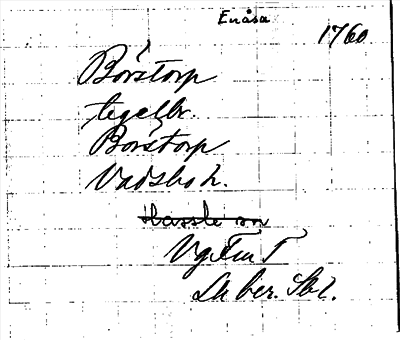 Enåsa
1760
Börstorp
tegelbr.
Börstorp
Vadsbo h.
Hassle sn
Vg
Lh ber. Skl.